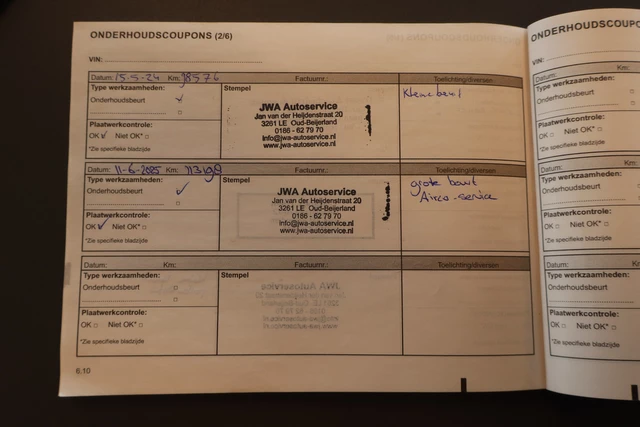 ONDERHOUDSCOUPONS (2/6)
VIN:
Datum: 15-5-24 Km: 98576 Factuurnr.: Toelichting/diversen
Type werkzaamheden:
Onderhoudsbeurt
Stempel
JWA Autoservice
Jan van der Heijdenstraat 20
3261 LE Oud-Beijerland
0186 - 62 79 70
info@jwa-autoservice.nl
www.jwa-autoservice.nl
Plaatwerkcontrole:
OK ✓ Niet OK* □
*Zie specifieke bladzijde
Datum: 11-6-2025 Km: Factuurnr.: Toelichting/diversen
Type werkzaamheden:
Onderhoudsbeurt ✓
Stempel
JWA Autoservice
Jan van der Heijdenstraat 20
3261 LE Oud-Beijerland
0186 - 62 79 70
info@jwa-autoservice.nl
www.jwa-autoservice.nl
grote beurt
Airco-service
Plaatwerkcontrole:
OK ✓ Niet OK* □
*Zie specifieke bladzijde
Datum: Km: Factuurnr.: Toelichting/diversen
Type werkzaamheden:
Onderhoudsbeurt □
Stempel
Plaatwerkcontrole:
OK □ Niet OK* □
*Zie specifieke bladzijde
6.10
ONDERHOUDSCOUPO
VIN:
Datum: Km:
Type werkzaamheden:
Onderhoudsbeurt
Plaatwerkcontrole:
OK □ Niet OK* □
*Zie specifieke bladzijde
Datum: Km:
Type werkzaamheden:
Onderhoudsbeurt
Plaatwerkcontrole:
OK □ Niet OK* □
*Zie specifieke bladzijde
Datum: Km:
Type werkzaamheden:
Onderhoudsbeurt
Plaatwerkcontrole:
OK □ Niet OK* □
*Zie specifieke bladzijde